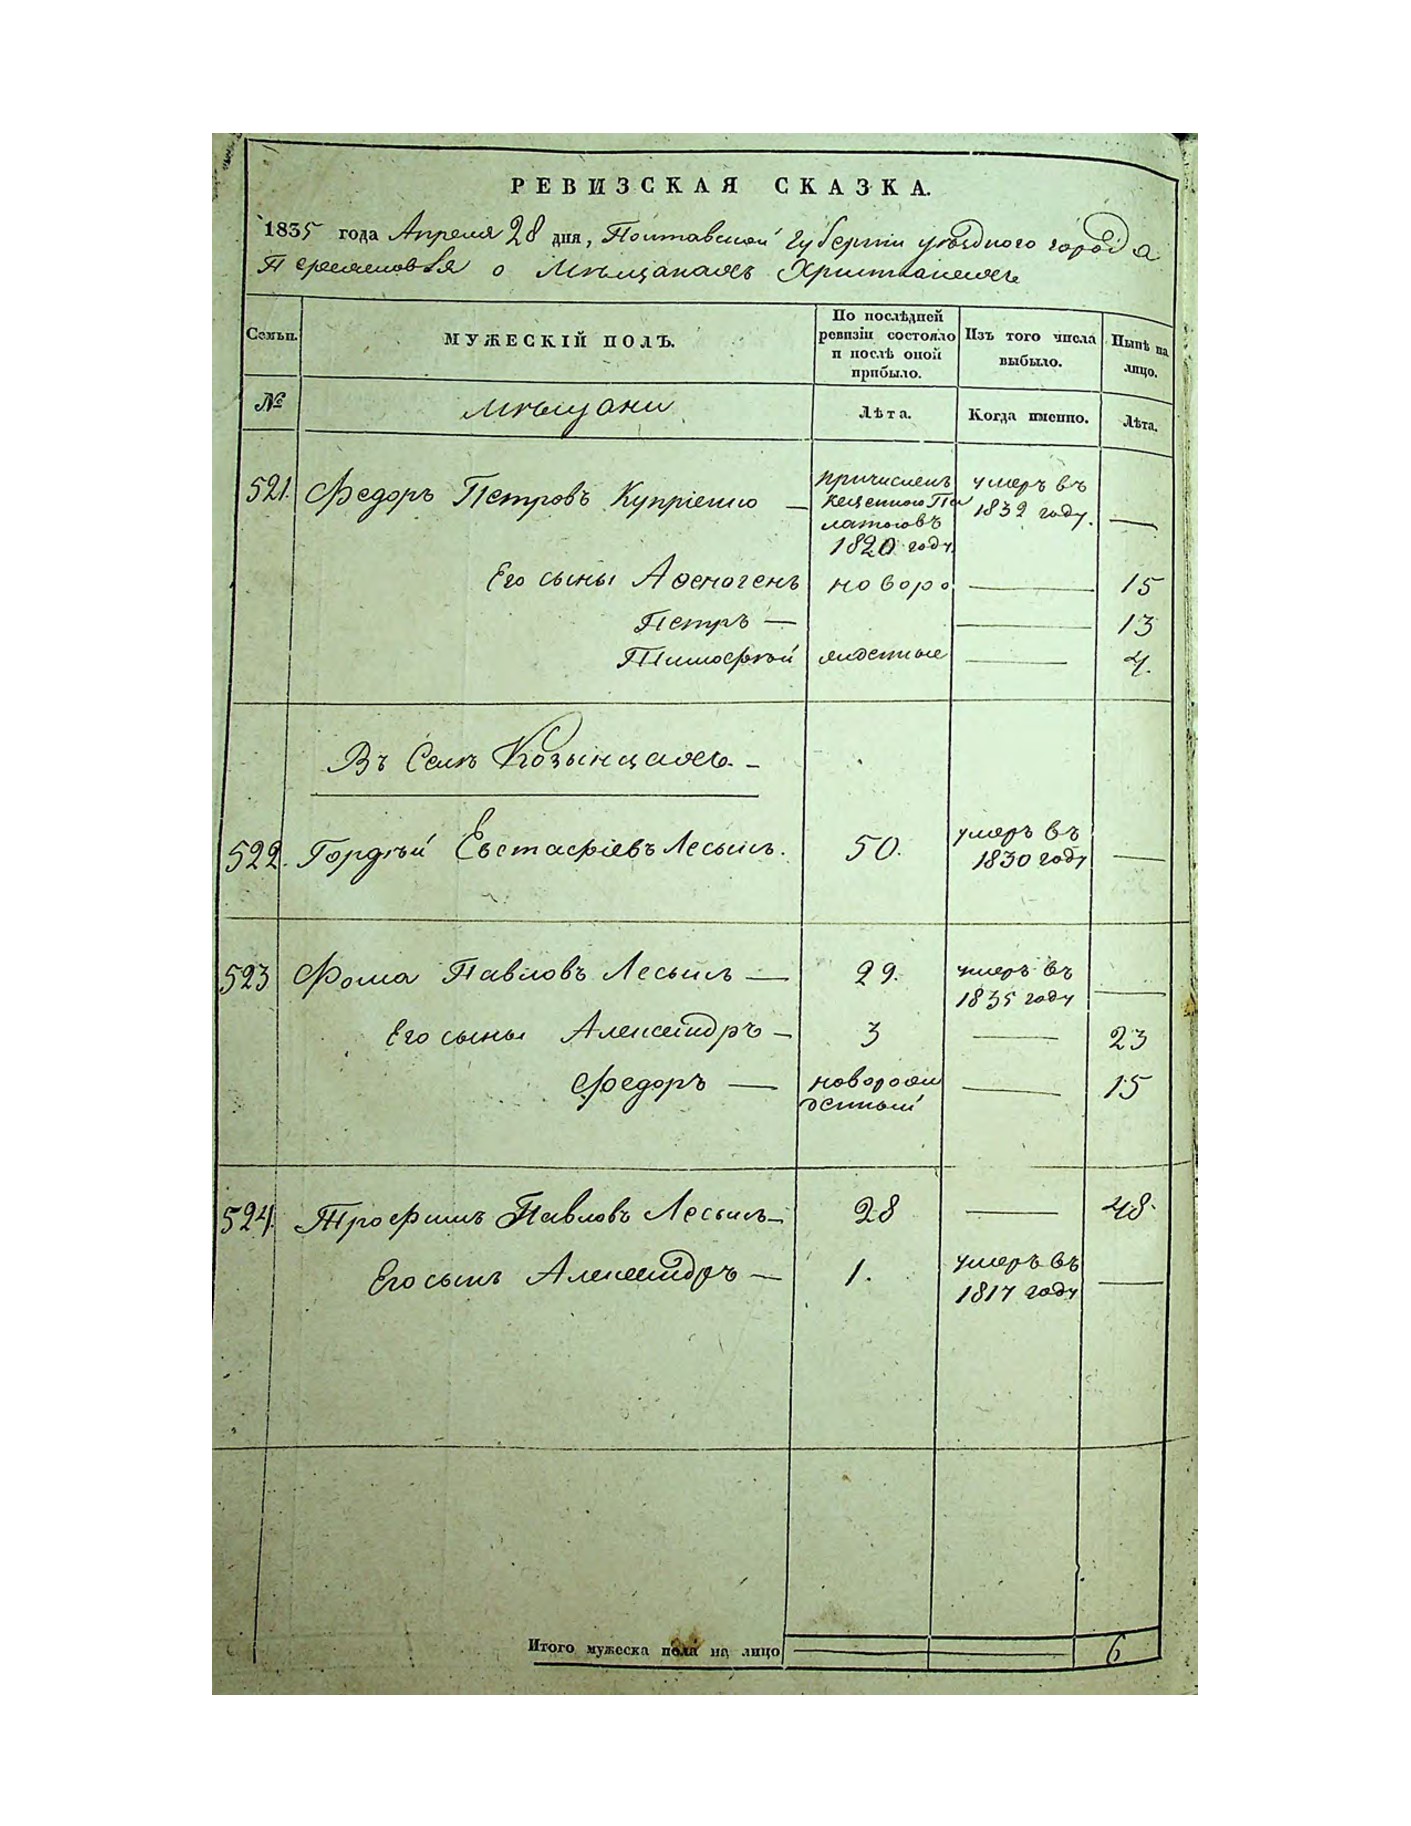 РЕВИЗСКАЯ СКАЗКА.
1835 года Апреля 28 дня, Полтавской Губернiи уѣзднаго города
Переяслова о Мѣщанахъ Христiанахъ
Семьи. МУЖЕСКIЙ ПОЛЪ. По послѣдней ревизiи состояло и послѣ оной прибыло. Изъ того числа выбыло. Нынѣ на лицо.
№ Мѣщани Лѣта. Когда именно. Лѣта.
521. Федоръ Петровъ Купрiенко — причисленъ Казенною Палатою въ 1820 году умеръ въ 1832 году. —
Его сыны Афеногенъ новоро — 15
Петръ — — 13
Тимофѣй жденные — 4.
Въ Селѣ Козынцахъ. –
522. Гордѣй Евстафiевъ Лесыкъ. 50. умеръ въ 1830 году —
523 Фома Павловъ Лесыкъ — 29. умеръ въ 1835 году —
Его сыны Александръ – 3 — 23
Федоръ — новорожденный — 15
524. Трофимъ Павловъ Лесыкъ – 28 — 48.
Его сынъ Александръ — 1. умеръ въ 1817 году —
Итого мужеска пола на лицо — 6